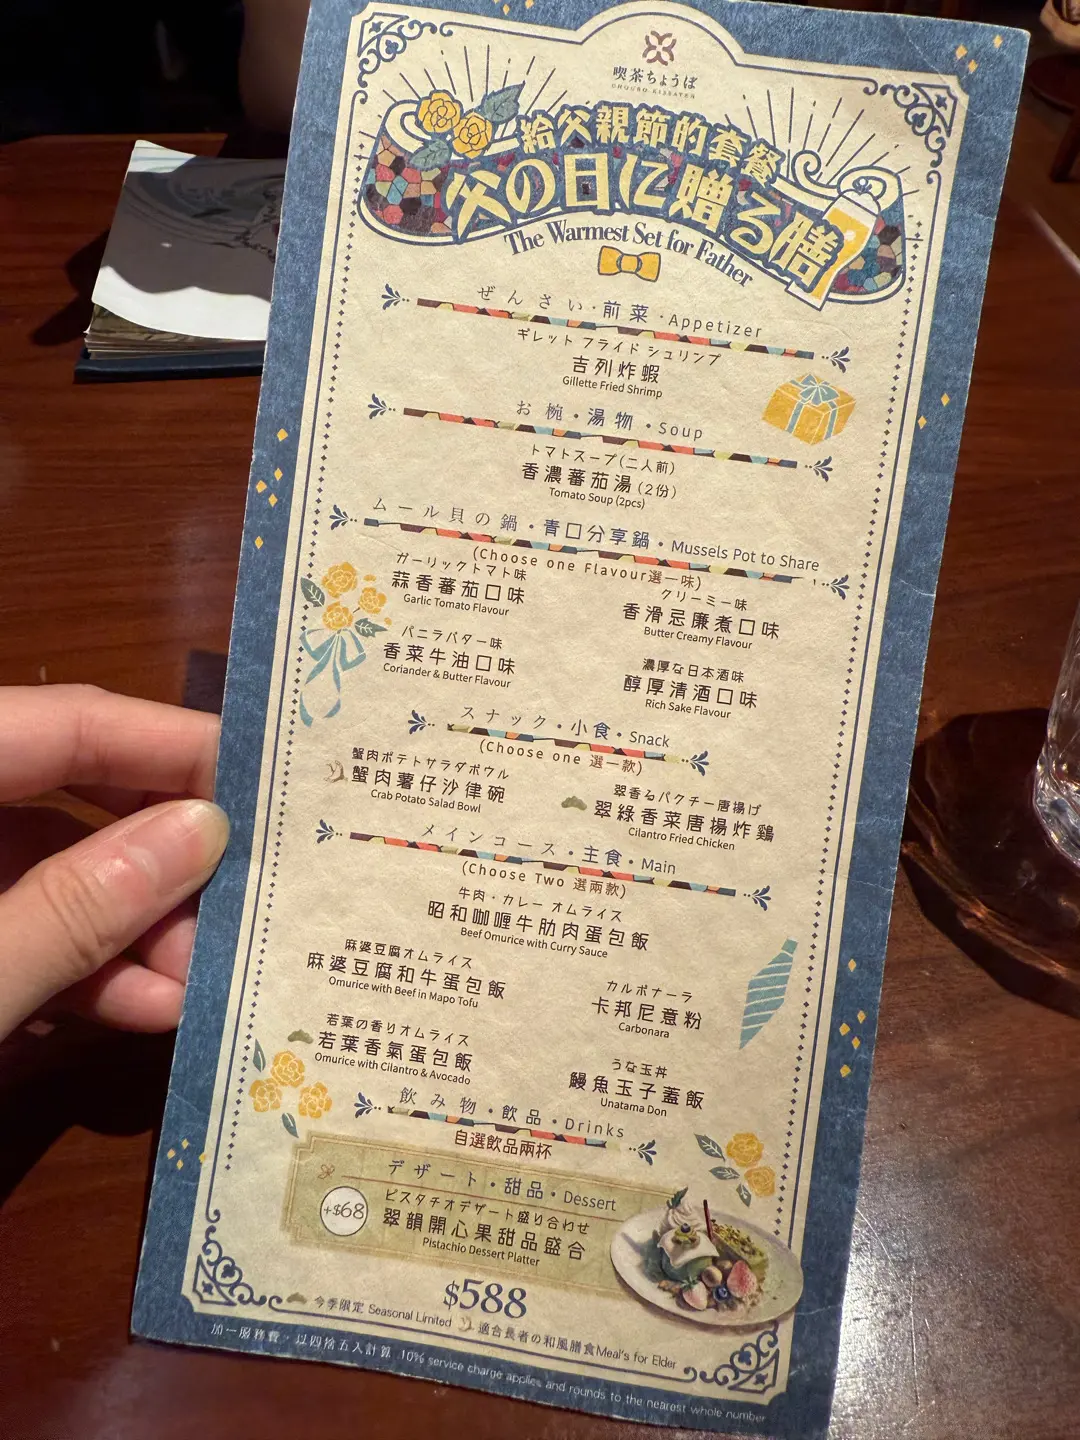 喫茶ちょうぼ
CHOUBO KISSATEN
給父親節的套餐
父の日に贈る膳
The Warmest Set for Father
ぜんさい・前菜・Appetizer
ギレット フライド シュリンプ
吉列炸蝦
Gillette Fried Shrimp
お椀・湯物・Soup
トマトスープ(二人前)
香濃蕃茄湯(2份)
Tomato Soup (2pcs)
ムール貝の鍋・青口分享鍋・Mussels Pot to Share
(Choose one Flavour選一味)
ガーリックトマト味
蒜香蕃茄口味
Garlic Tomato Flavour
クリーミー味
香滑忌廉煮口味
Butter Creamy Flavour
バニラバター味
香菜牛油口味
Coriander & Butter Flavour
濃厚な日本酒味
醇厚清酒口味
Rich Sake Flavour
スナック・小食・Snack
(Choose one 選一款)
蟹肉ポテトサラダボウル
蟹肉薯仔沙律碗
Crab Potato Salad Bowl
翠香るパクチー唐揚げ
翠綠香菜唐揚炸鷄
Cilantro Fried Chicken
メインコース・主食・Main
(Choose Two 選兩款)
牛肉・カレー オムライス
昭和咖喱牛肋肉蛋包飯
Beef Omurice with Curry Sauce
麻婆豆腐オムライス
麻婆豆腐和牛蛋包飯
Omurice with Beef in Mapo Tofu
カルボナーラ
卡邦尼意粉
Carbonara
若葉の香りオムライス
若葉香氣蛋包飯
Omurice with Cilantro & Avocado
うな玉丼
鰻魚玉子蓋飯
Unatama Don
飲み物・飲品・Drinks
自選飲品兩杯
デザート・甜品・Dessert
+$68
ピスタチオデザート盛り合わせ
翠韻開心果甜品盛合
Pistachio Dessert Platter
$588
今季限定 Seasonal Limited 適合長者の和風膳食Meal's for Elder
加一服務費，以四捨五入計算 10% service charge applies and rounds to the nearest whole number